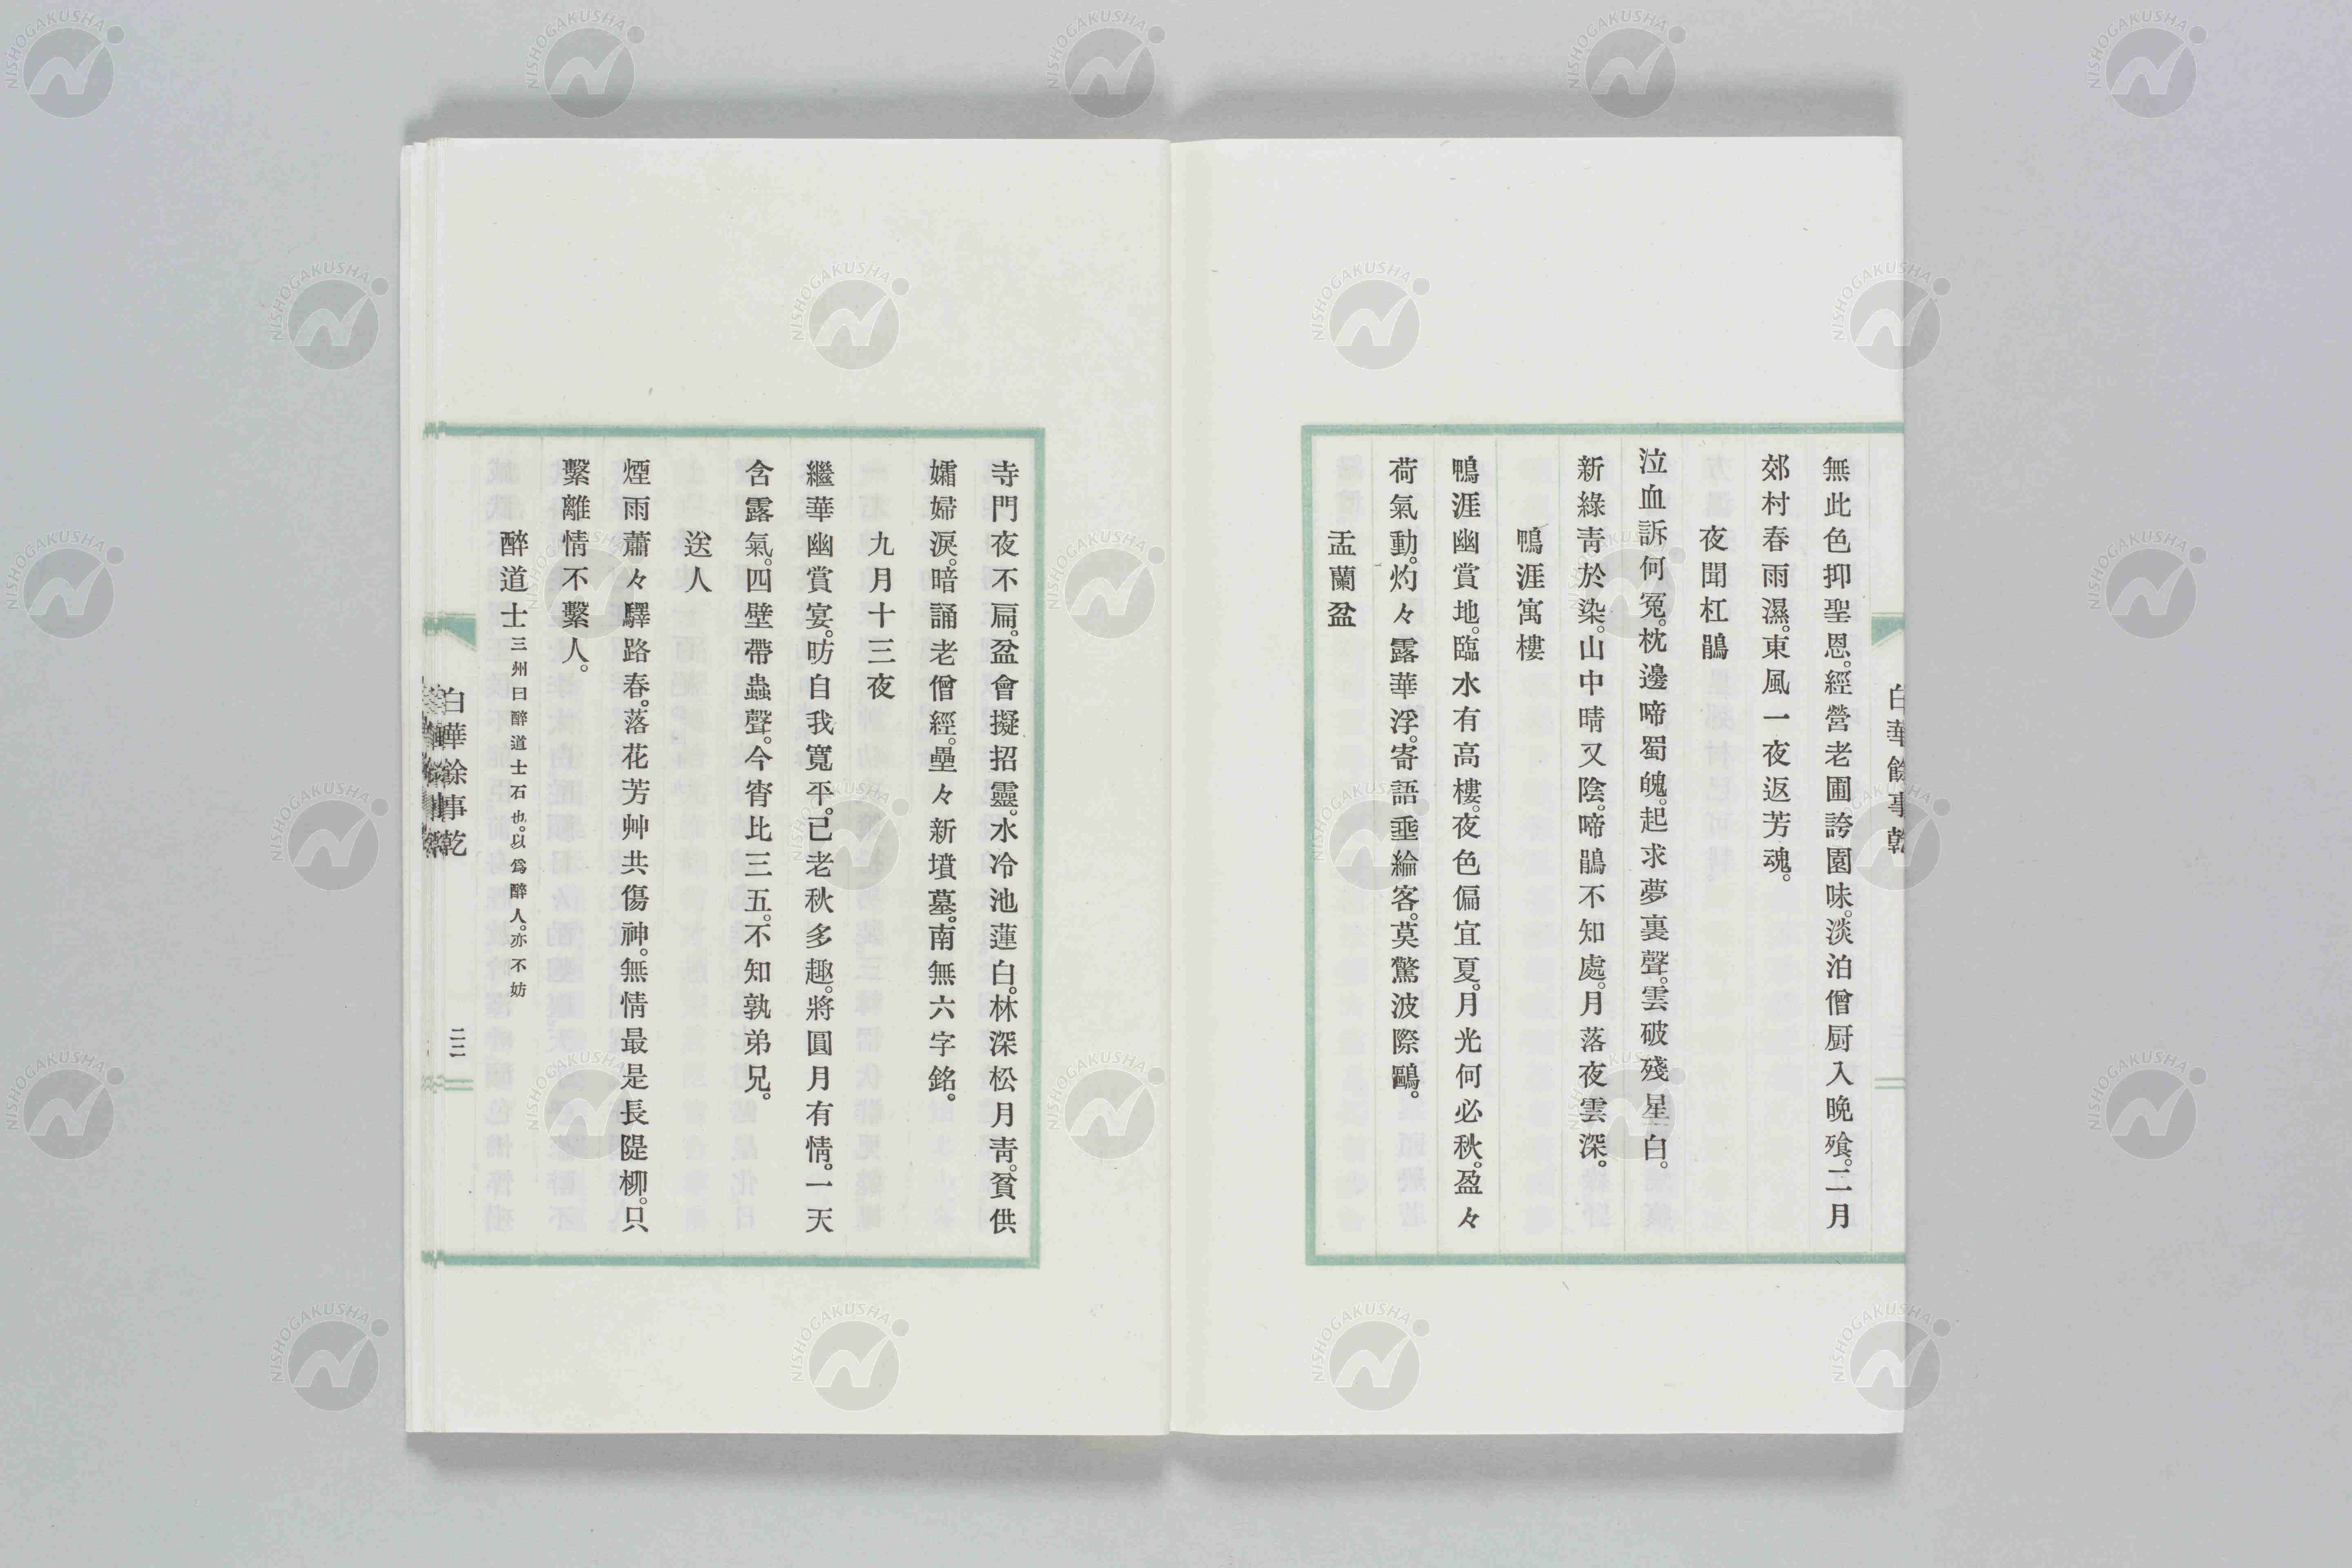 無此色抑聖恩。經營老圃誇園味。淡泊僧厨入晩飱。二月
郊村春雨濕。東風一夜返芳魂。
夜聞杜鵑
泣血訴何冤。枕邊啼蜀魄。起求夢裏聲。雲破殘星白。
新綠靑於染。山中晴又陰。啼鵑不知處。月落夜雲深。
鴨涯寓樓
鴨涯幽賞地。臨水有高樓。夜色偏宜夏。月光何必秋。盈々
荷氣動。灼々露華浮。寄語垂綸客。莫驚波際鷗。
盂蘭盆
白華餘事乾
寺門夜不扃。盆會擬招靈。水冷池蓮白。林深松月靑。貧供
孀婦淚。暗誦老僧經。壘々新墳墓。南無六字銘。
九月十三夜
繼華幽賞宴。昉自我寬平。已老秋多趣。將圓月有情。一天
含露氣。四壁帶蟲聲。今宵比三五。不知孰弟兄。
送人
煙雨蕭々驛路春。落花芳艸共傷神。無情最是長隄柳。只
繫離情不繫人。
醉道士三州曰醉道士石也。以爲醉人。亦不妨
白華餘事乾
二二
NISHOGAKUSHA